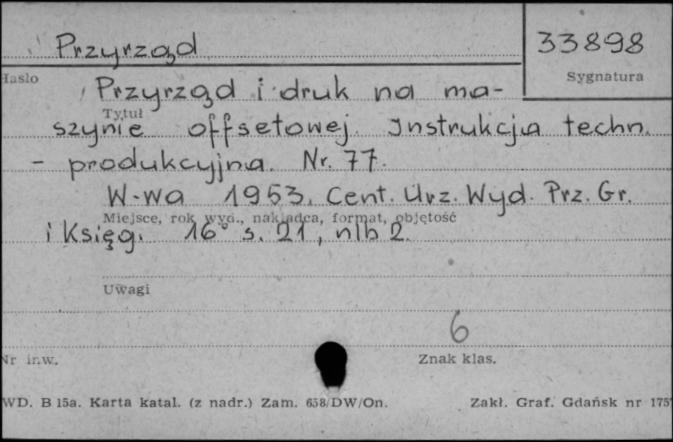 Przyrząd
33898
Hasło
Sygnatura
Przyrząd i druk na ma-
Tytuł
szynie offsetowej. Instrukcja techn.
- produkcyjna. Nr. 77.
W-wa 1953. Cent. Urz. Wyd. Prz. Gr.
Miejsce, rok wyd., nakładca, format, objętość
i Księg. 16° s. 21, nlb 2.
Uwagi
6
Nr inw.
Znak klas.
WD. B 15a. Karta katal. (z nadr.) Zam. 658/DW/On.
Zakł. Graf. Gdańsk nr 175